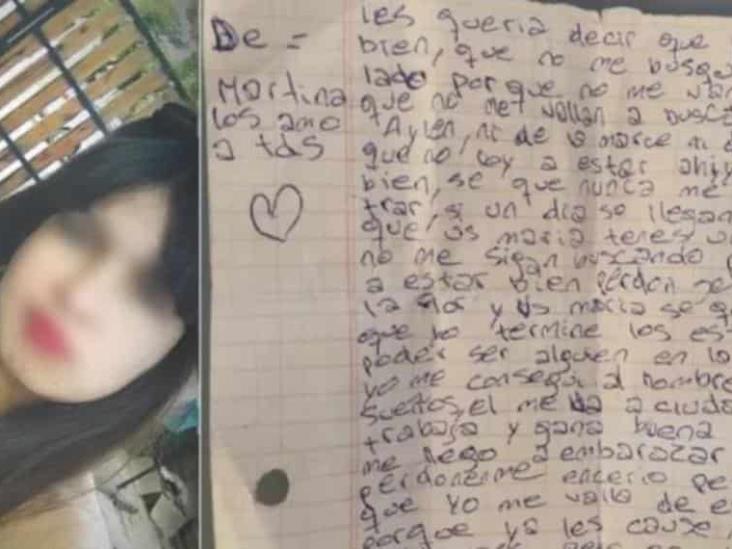 De =
Martina
los amo
a tds
les queria decir que
bien, que no me busqu
lado porque no me van
que no me vallan a busca
Aylen, ni de la marce ni d
que no voy a estar ahi, y
bien, se que nunca me
trar, si un dia se llegan
que us maria tenes un
no me sigan buscando
a estar bien perdon se
la flor y us maria se q
que yo termine los es
poder ser alguien en la
yo me consegui al hombre
sueños, el me va a cuida
trabaja y gana buena
me llego a embarazar
perdonenme encerio pe
que yo me valla de e
porque ya les cause